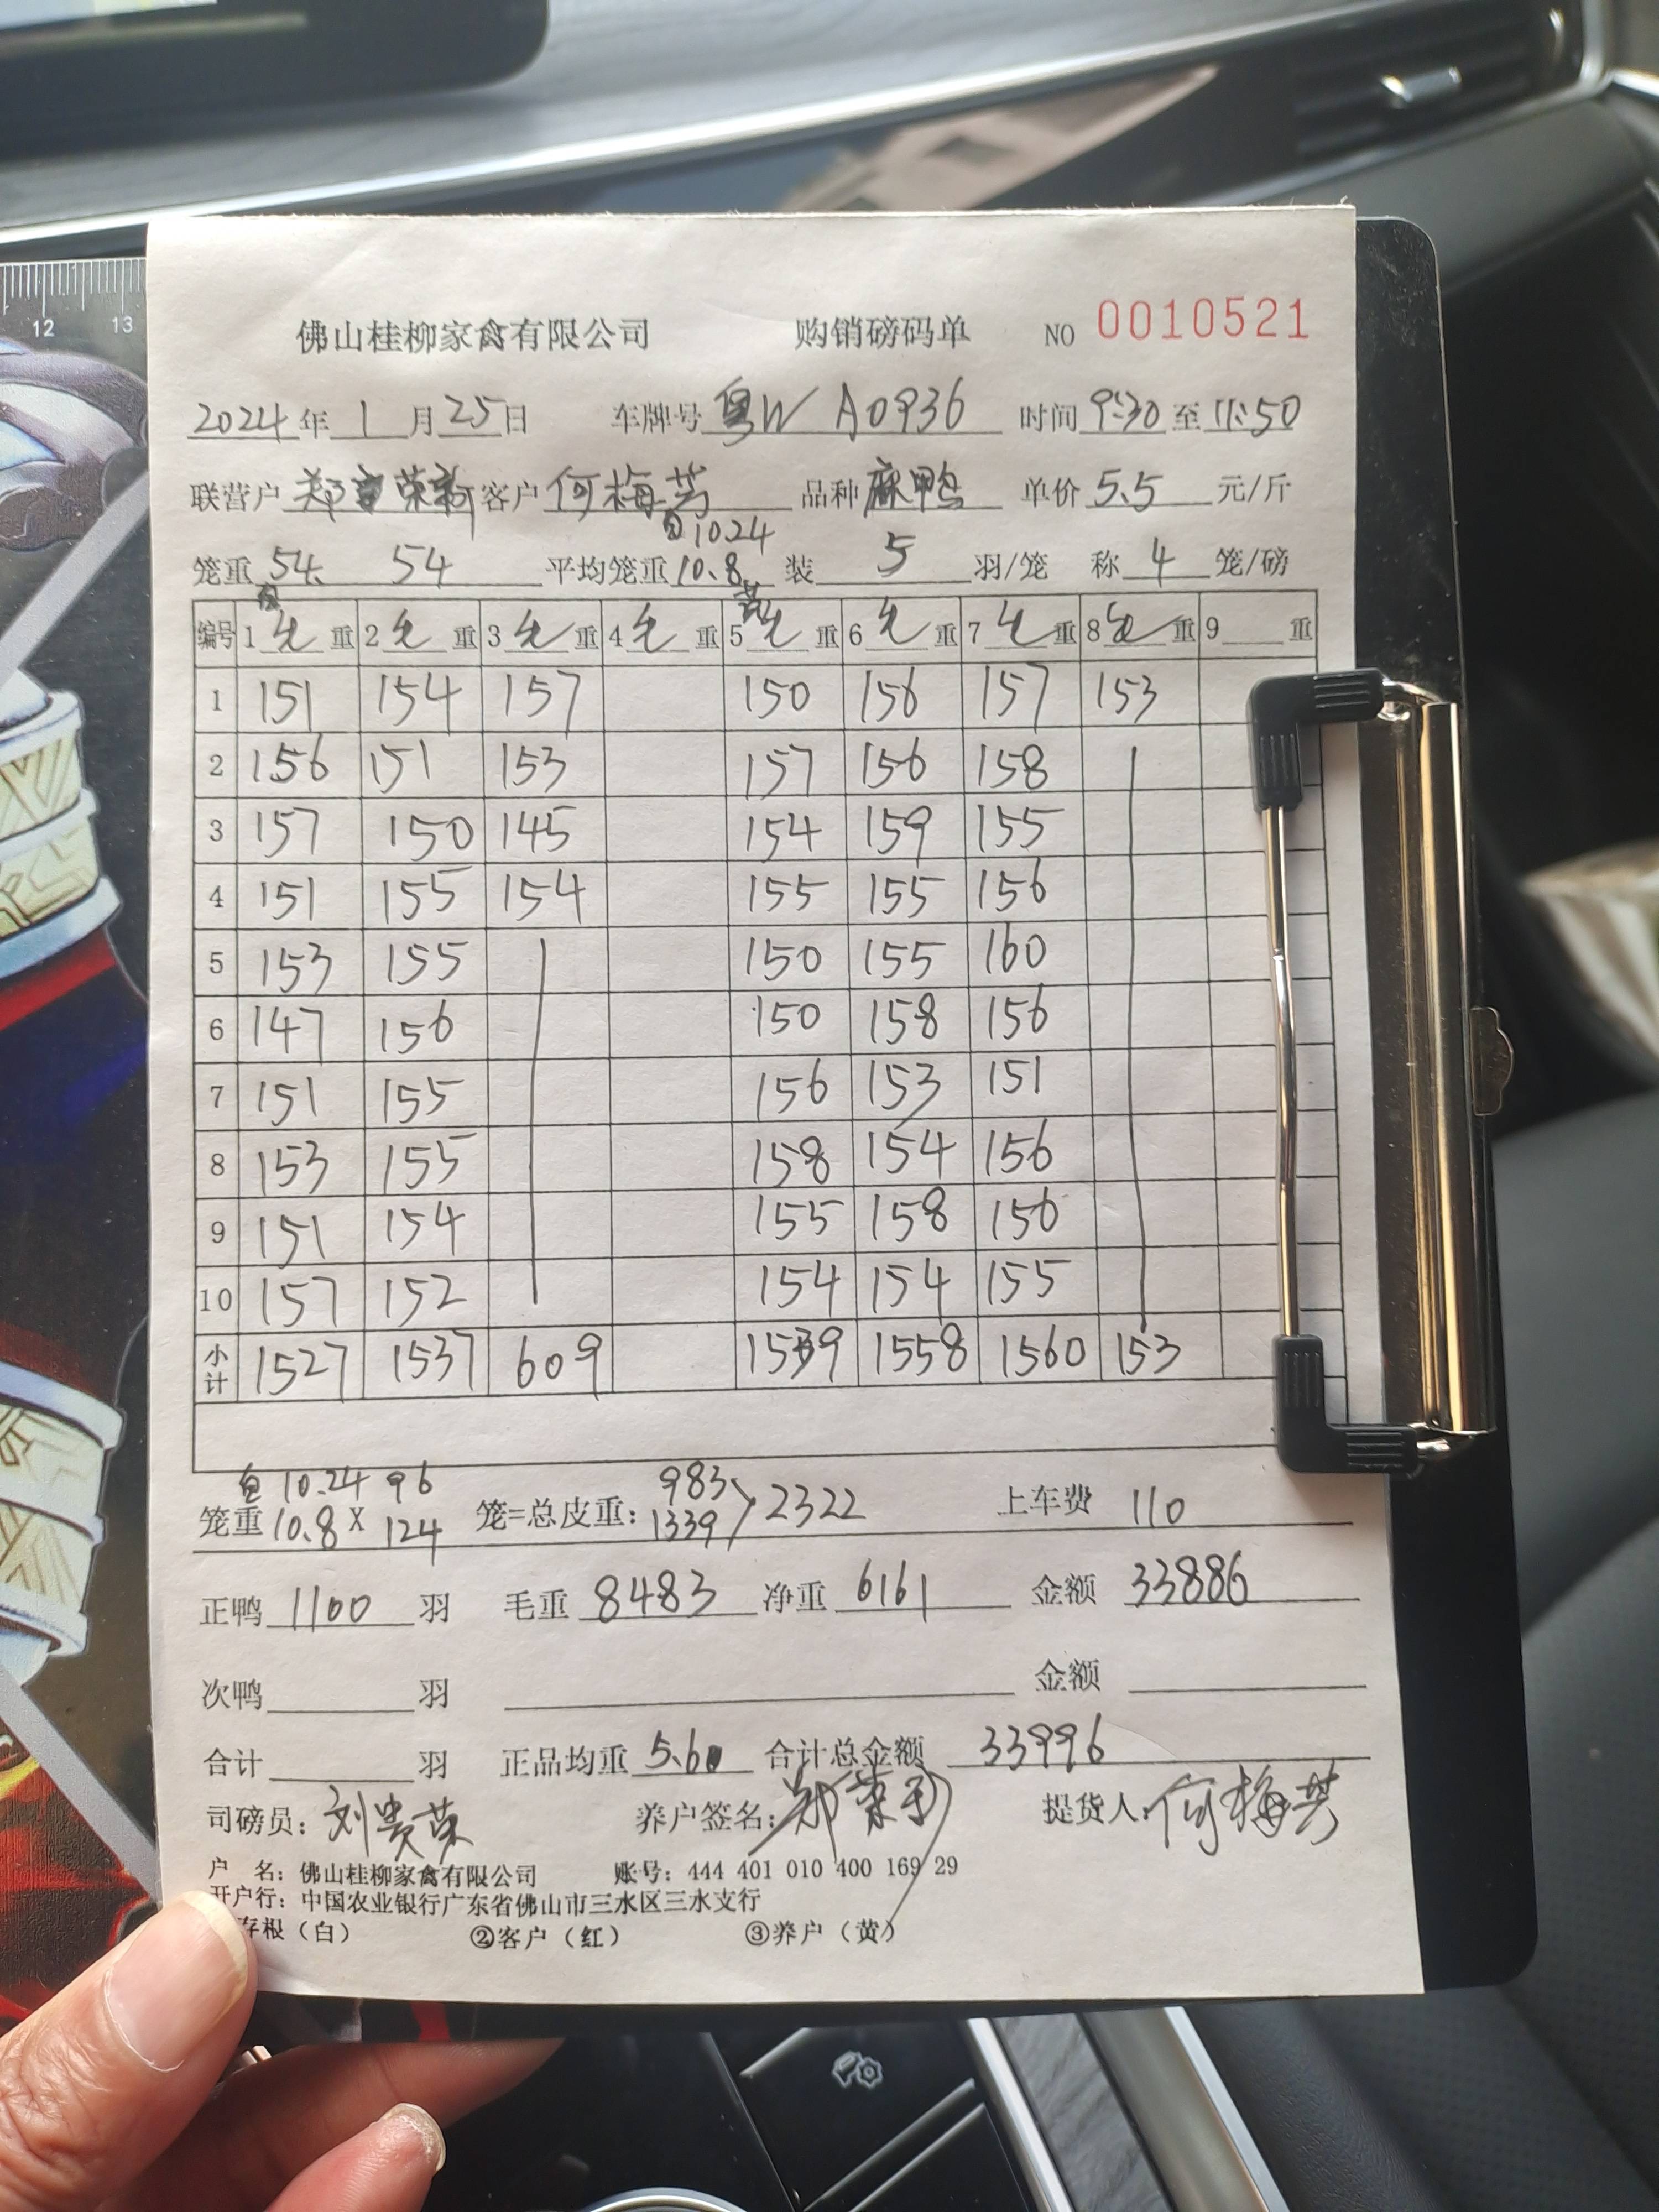 12 13
佛山桂柳家禽有限公司 购销磅码单 NO 0010521
2024年 1 月 25 日 车牌号 粤W A0936 时间 9:30 至 11:50
联营户 郑荣新 客户 何梅芳 品种 麻鸭 单价 5.5 元/斤
白10.24
笼重 54. 54 平均笼重 10.8 装 5 羽/笼 称 4 笼/磅
编号 1 毛 重 2 毛 重 3 毛 重 4 毛 重 5 毛 重 6 毛 重 7 毛 重 8 毛 重 9 重
1 151 154 157 150 156 157 153
2 156 151 153 157 156 158
3 157 150 145 154 159 155
4 151 155 154 155 155 156
5 153 155 150 155 160
6 147 156 150 158 156
7 151 155 156 153 151
8 153 155 158 154 156
9 151 154 155 158 156
10 157 152 154 154 155
小计 1527 1537 609 1539 1558 1560 153
白 10.24 96 983
笼重 10.8 X 124 笼=总皮重: 1339 2322 上车费 110
正鸭 1100 羽 毛重 8483 净重 6161 金额 33886
次鸭 羽 金额
合计 羽 正品均重 5.60 合计总金额 33996
司磅员: 刘贵荣 养户签名: 郑荣新 提货人: 何梅芳
户 名: 佛山桂柳家禽有限公司 账号: 444 401 010 400 169 29
开户行: 中国农业银行广东省佛山市三水区三水支行
存根（白） ②客户（红） ③养户（黄）